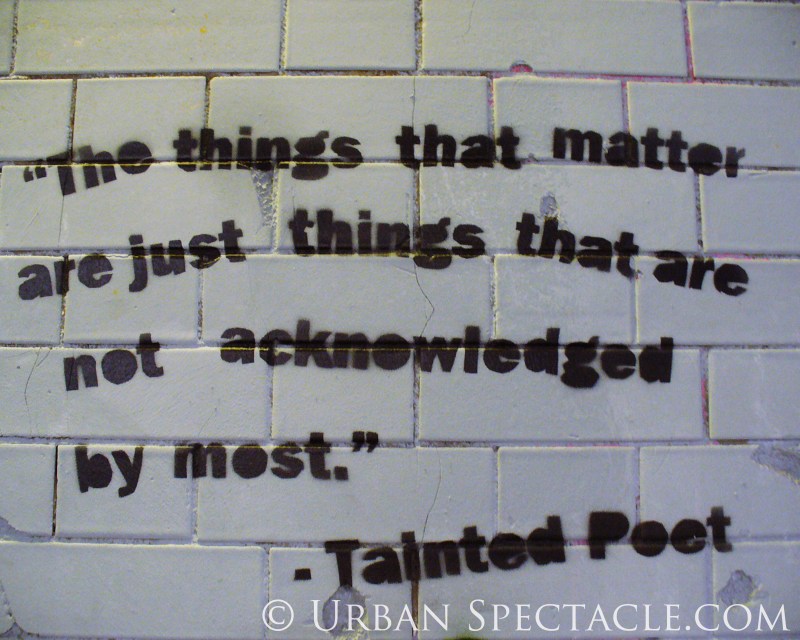 “The things that matter
are just things that are
not acknowledged
by most.”
- Tainted Poet
© Urban Spectacle.com